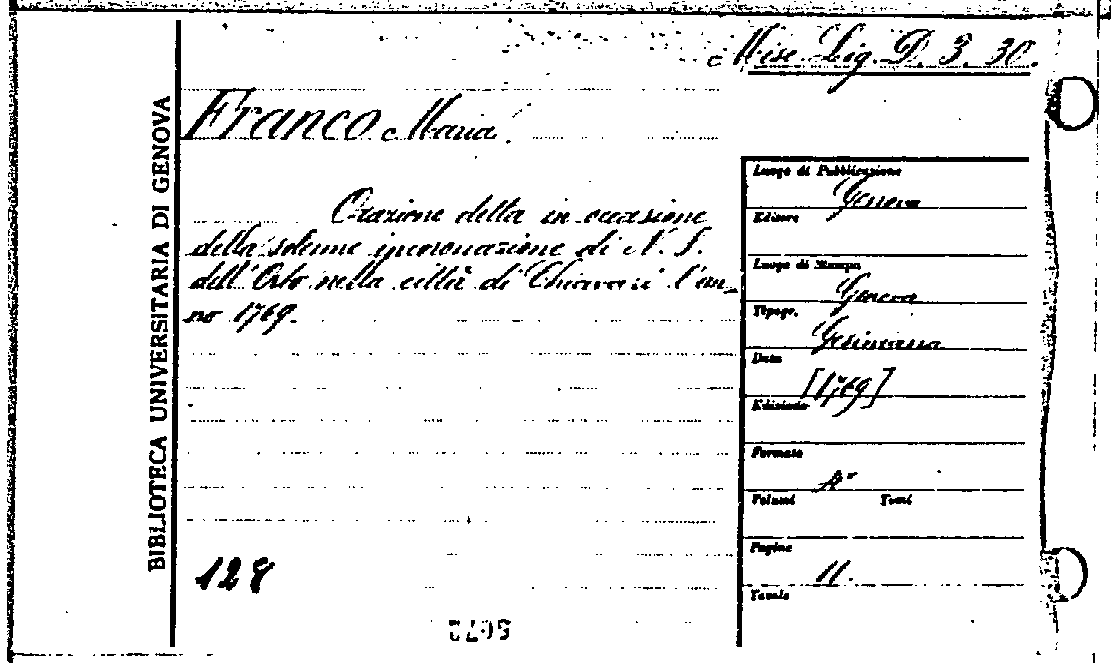 Misc. Lig. D. 3. 30.
BIBLIOTECA UNIVERSITARIA DI GENOVA
Franco Maria
Orazione detta in occasione
della solenne incoronazione di N. S.
dell'Orto nella città di Chiavari l'an-
no 1769.
128
Luogo di Pubblicazione
Genova
Editore
Luogo di Stampa
Genova
Tipogr.
Gesiniana
Data
[1769]
Edizione
Formato
4°
Volumi Tomi
Pagine
11.
Tavole